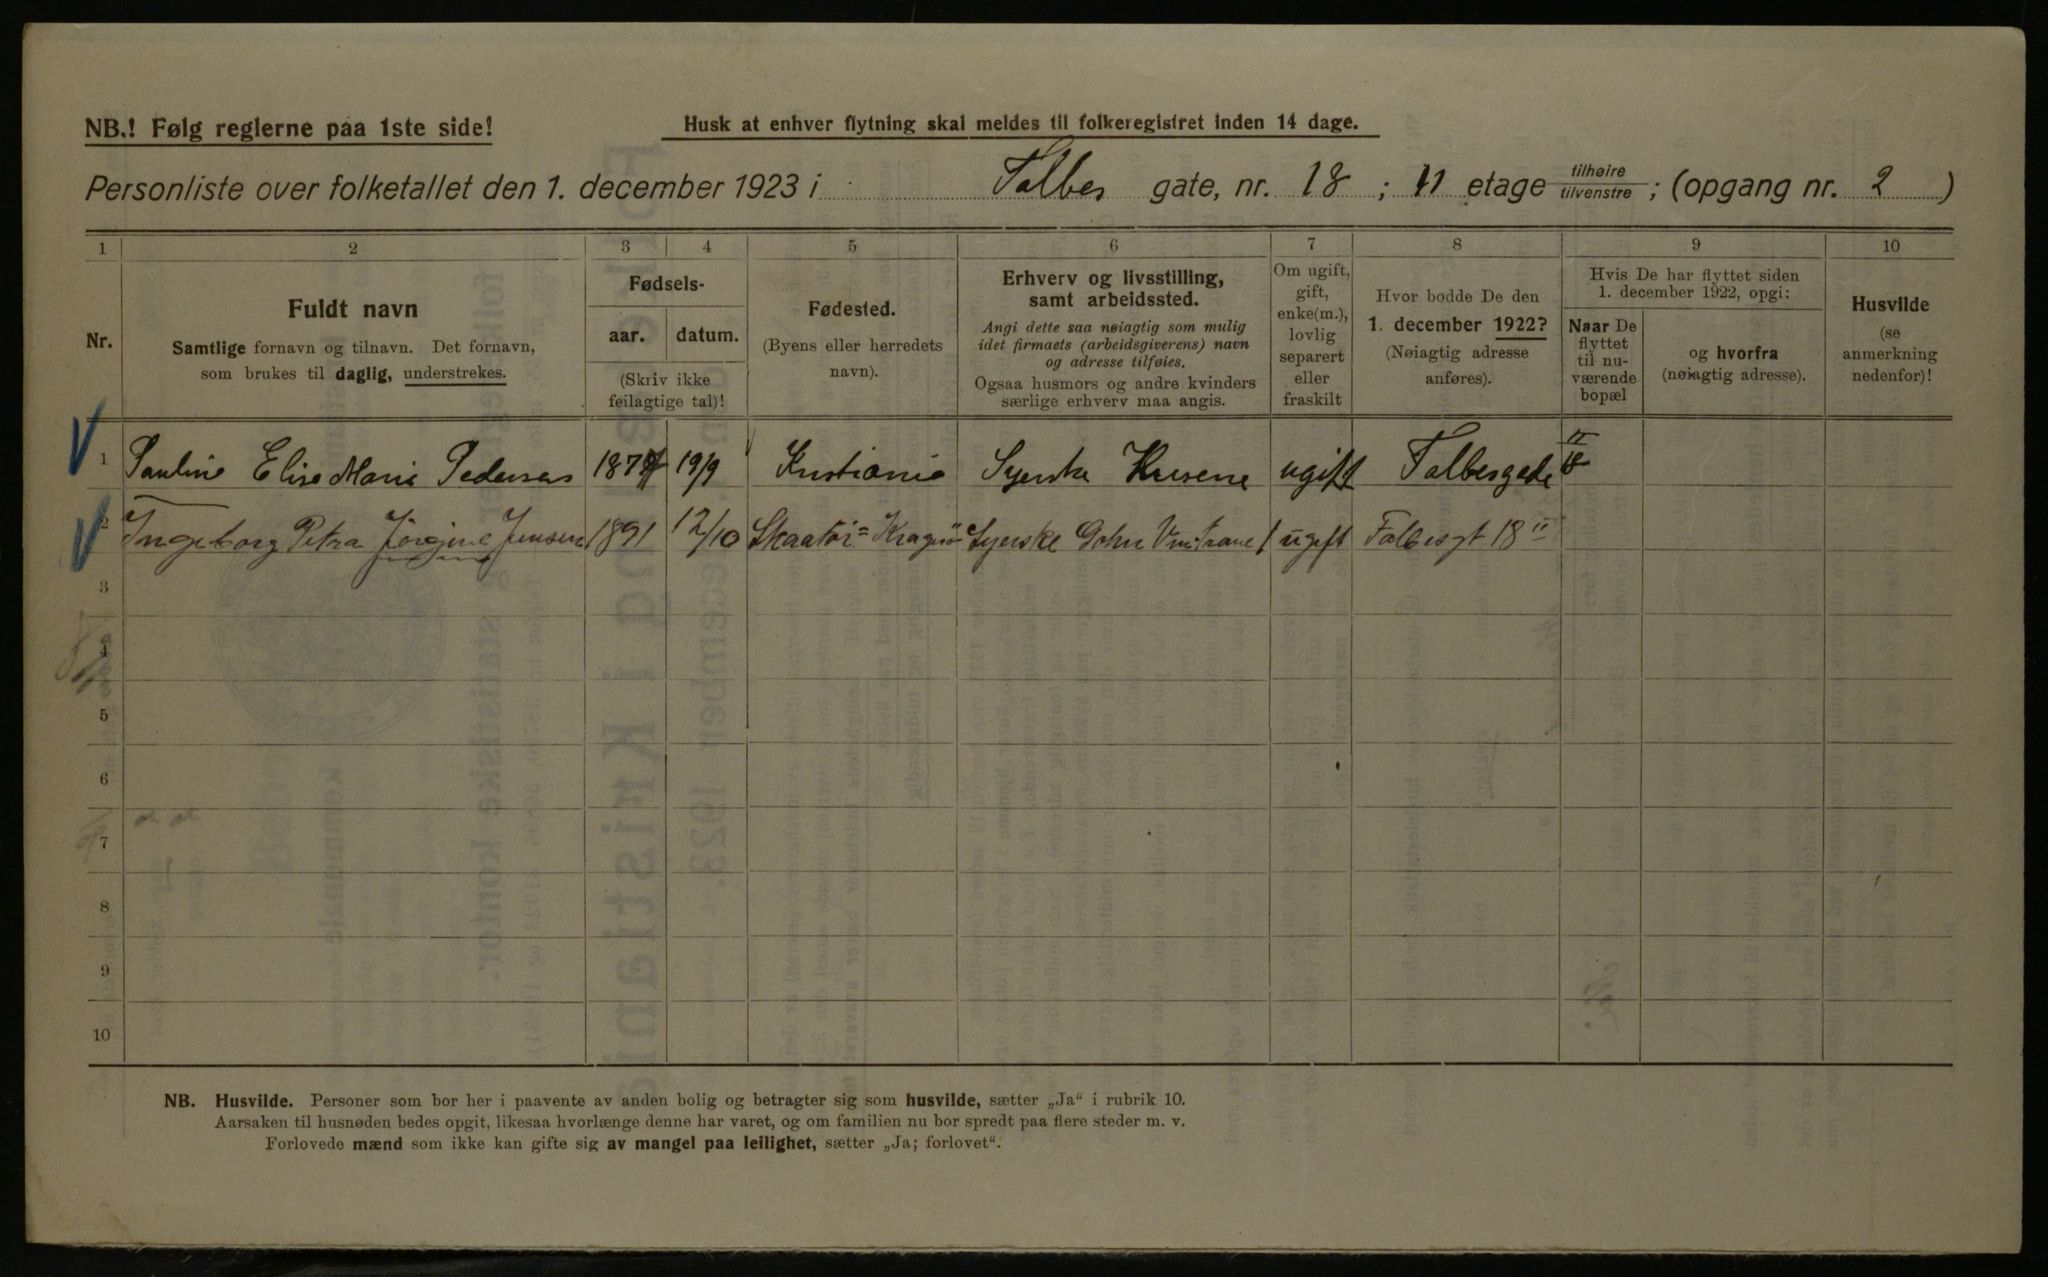 NB.! Følg reglerne paa 1ste side!
Husk at enhver flytning skal meldes til folkeregistret inden 14 dage.
Personliste over folketallet den 1. december 1923 i Falbes gate, nr. 18 ; II etage tilhøire tilvenstre ; (opgang nr. 2 )
1 2 3 4 5 6 7 8 9 10
Nr.
Fuldt navn
Samtlige fornavn og tilnavn. Det fornavn,
som brukes til daglig, understrekes.
Fødsels-
aar. datum.
(Skriv ikke
feilagtige tal)!
Fødested.
(Byens eller herredets
navn).
Erhverv og livsstilling,
samt arbeidssted.
Angi dette saa nøiagtig som mulig
idet firmaets (arbeidsgiverens) navn
og adresse tilføies.
Ogsaa husmors og andre kvinders
særlige erhverv maa angis.
Om ugift,
gift,
enke(m.),
lovlig
separert
eller
fraskilt
Hvor bodde De den
1. december 1922?
(Nøiagtig adresse
anføres).
Hvis De har flyttet siden
1. december 1922, opgi:
Naar De
flyttet
til nu-
værende
bopæl
og hvorfra
(nøiagtig adresse).
Husvilde
(se
anmerkning
nedenfor)!
1 Pauline Elise Marie Pedersen 1879 19/9 Kristiania Syerske ugift Falbesgade 18 II
2 Ingeborg Petra Jörgine Jensen 1891 12/10 Skaatöi = Kragerö Syerske ugift Falbesgt 18 II
3
4
5
6
7
8
9
10
NB. Husvilde. Personer som bor her i paavente av anden bolig og betragter sig som husvilde, sætter „Ja“ i rubrik 10.
Aarsaken til husnøden bedes opgit, likesaa hvorlænge denne har varet, og om familien nu bor spredt paa flere steder m. v.
Forlovede mænd som ikke kan gifte sig av mangel paa leilighet, sætter „Ja; forlovet“.